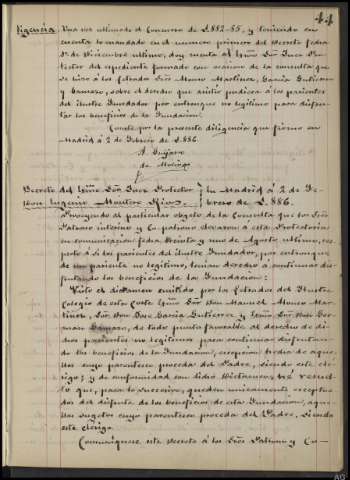 44
Vigencia Una vez ultimado el Concurso de 1.882-85, y teniendo en
cuenta lo mandado en el número primero del Decreto fecha
1º de Diciembre último, doy cuenta al Ilmo Señor Juez Pro-
tector del expediente formado con ocasión de la consulta que
se hizo á los Letrados Sres Alonso Martínez, García Gutierrez
y Gamazo, sobre el derecho que asistir pudiera á los parientes
del ilustre Fundador por entronque no legítimo para disfru-
tar los beneficios de la Fundación.
Conste por la presente diligencia que firmo en
Madrid á 2 de Febrero de 1.886.
de
Decreto del Ilmo Señor Juez Protector En Madrid á 2 de Fe-
Don Eugenio Montero Ríos. brero de 1.886.
Proveyendo al particular objeto de la Consulta que los Sres
Patrono interino y Co-patrono elevaron á esta Protectoría
en comunicación fecha treinta y uno de Agosto último, res-
pecto á si los parientes del ilustre Fundador, por entronque
de un pariente no legítimo, tenían derecho á continuar dis-
frutando los beneficios de la Fundación:
Visto el dictamen emitido por los Letrados del Ilustre
Colegio de esta Corte Ilmo Sr. Don Manuel Alonso Mar-
tínez, Sr. Don José García Gutierrez y Ilmo Sr. Don Ger-
mán Gamazo, de todo punto favorable al derecho de di-
chos parientes no legítimos para continuar disfrutan-
do los beneficios de la Fundación, excepción hecha de aque-
llos cuyo parentesco proceda del Padre, siendo este clé-
rigo; y de conformidad con dicho dictamen, he resuel-
to que, para lo sucesivo, queden únicamente excep-
dos del disfrute de los beneficios de esta Fundación, aque-
llos sugetos cuyo parentesco proceda del Padre, siendo
este clérigo.
Comuníquese este Decreto á los Sres Patrono y Co-